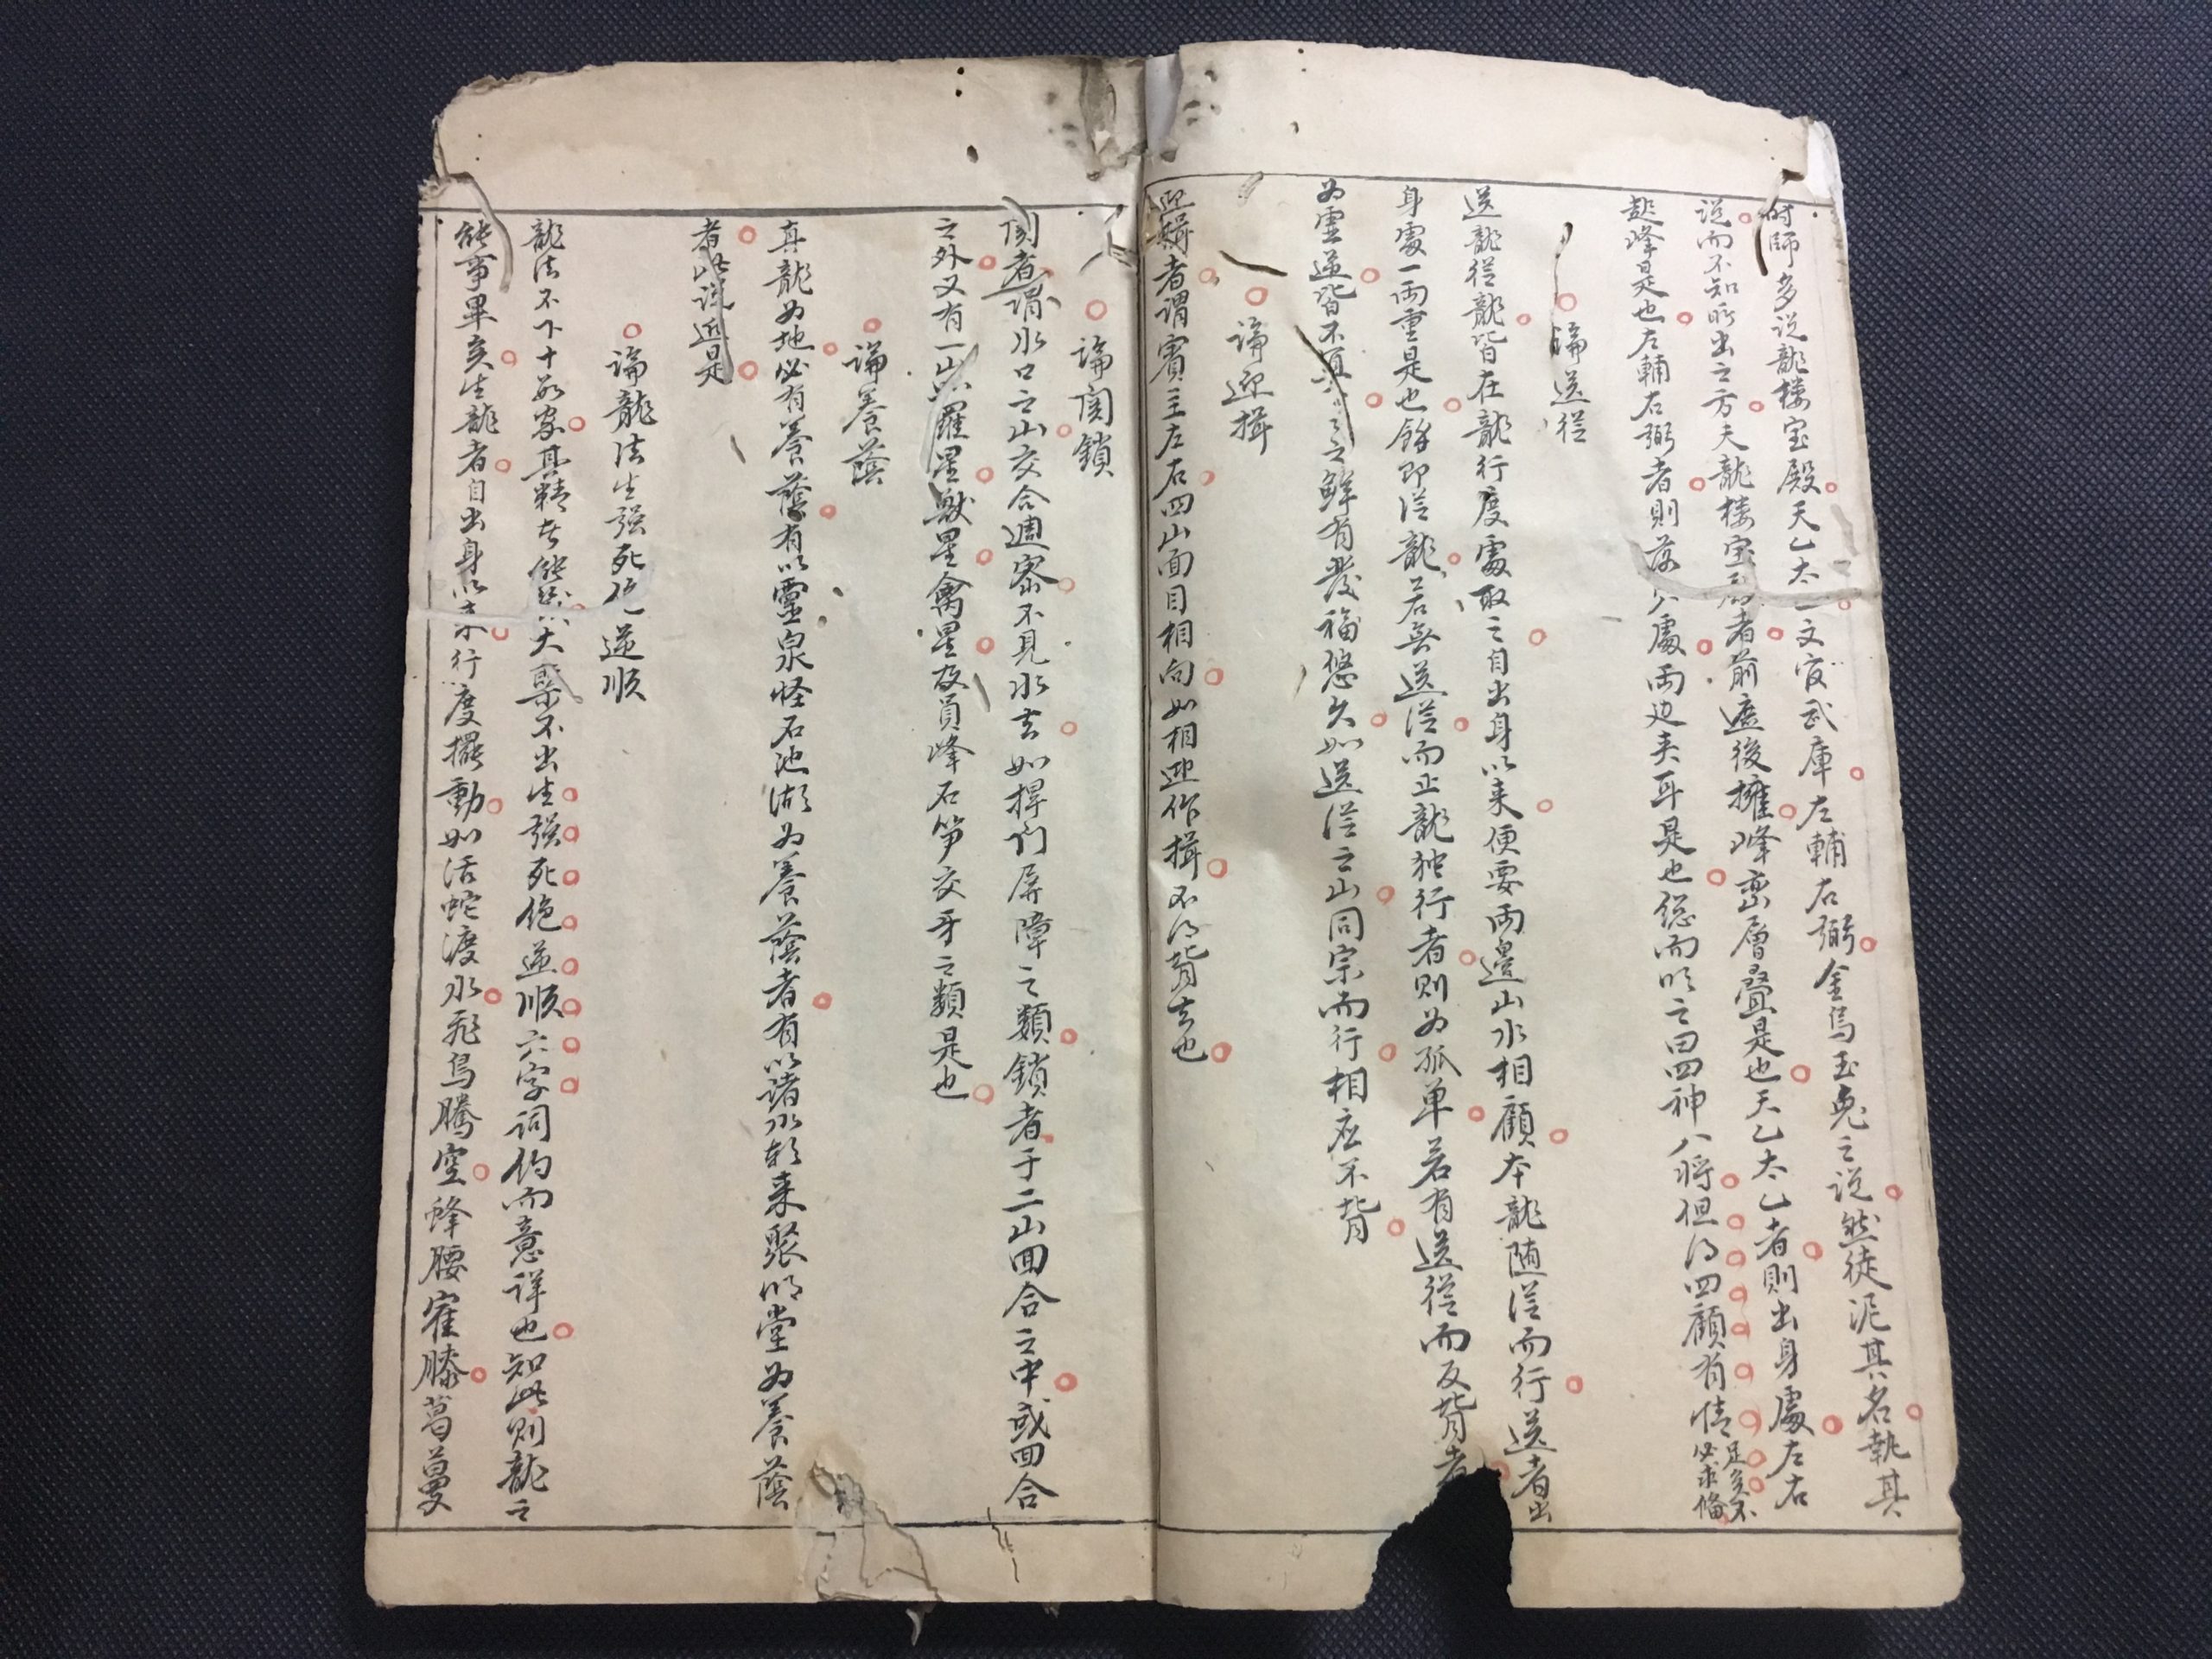 時師多说龍楼宝殿天乙太乙文官武庫左輔右弼金烏玉兔之说然徒泥其名執其
说而不知所出之方夫龍楼宝殿者前遮後擁峰巒層叠是也天乙太乙者則出身處左右
起峰是也左輔右弼者則落穴處両边夹耳是也総而明之曰四神八將但得四顧有情足矣不必求俻
論送從
送龍從龍皆在龍行度處取之自出身以来便要両邊山水相顧本龍随從而行送者出
身處一両重是也餘即從龍若無送從而正龍独行者則為孤单若有送從而反背者
為虚逆皆不真之鮮有發福悠久如送從之山同宗而行相应不背
論迎揖
迎揖者謂賓主左右四山面目相向如相迎作揖不得背去也
論関鎖
関者謂水口之山交合週宻不见水去如捍門屏障之類鎖者于二山回合之中或回合
之外又有一山羅星獸星禽星及員峰石笋交牙之類是也
論養蔭
真龍為地必有養蔭有以靈泉怪石池湖為養蔭者有以诸水朝来聚明堂為養蔭
者此说近是
論龍法生强死绝逆順
龍法不下十数家其精者能然大槩不出生强死绝逆順六字词约而意详也知此则龍之
能事畢矣生龍者自出身以来行度擺動如活蛇渡水飛鳥騰空蜂腰崔膝葛蔓